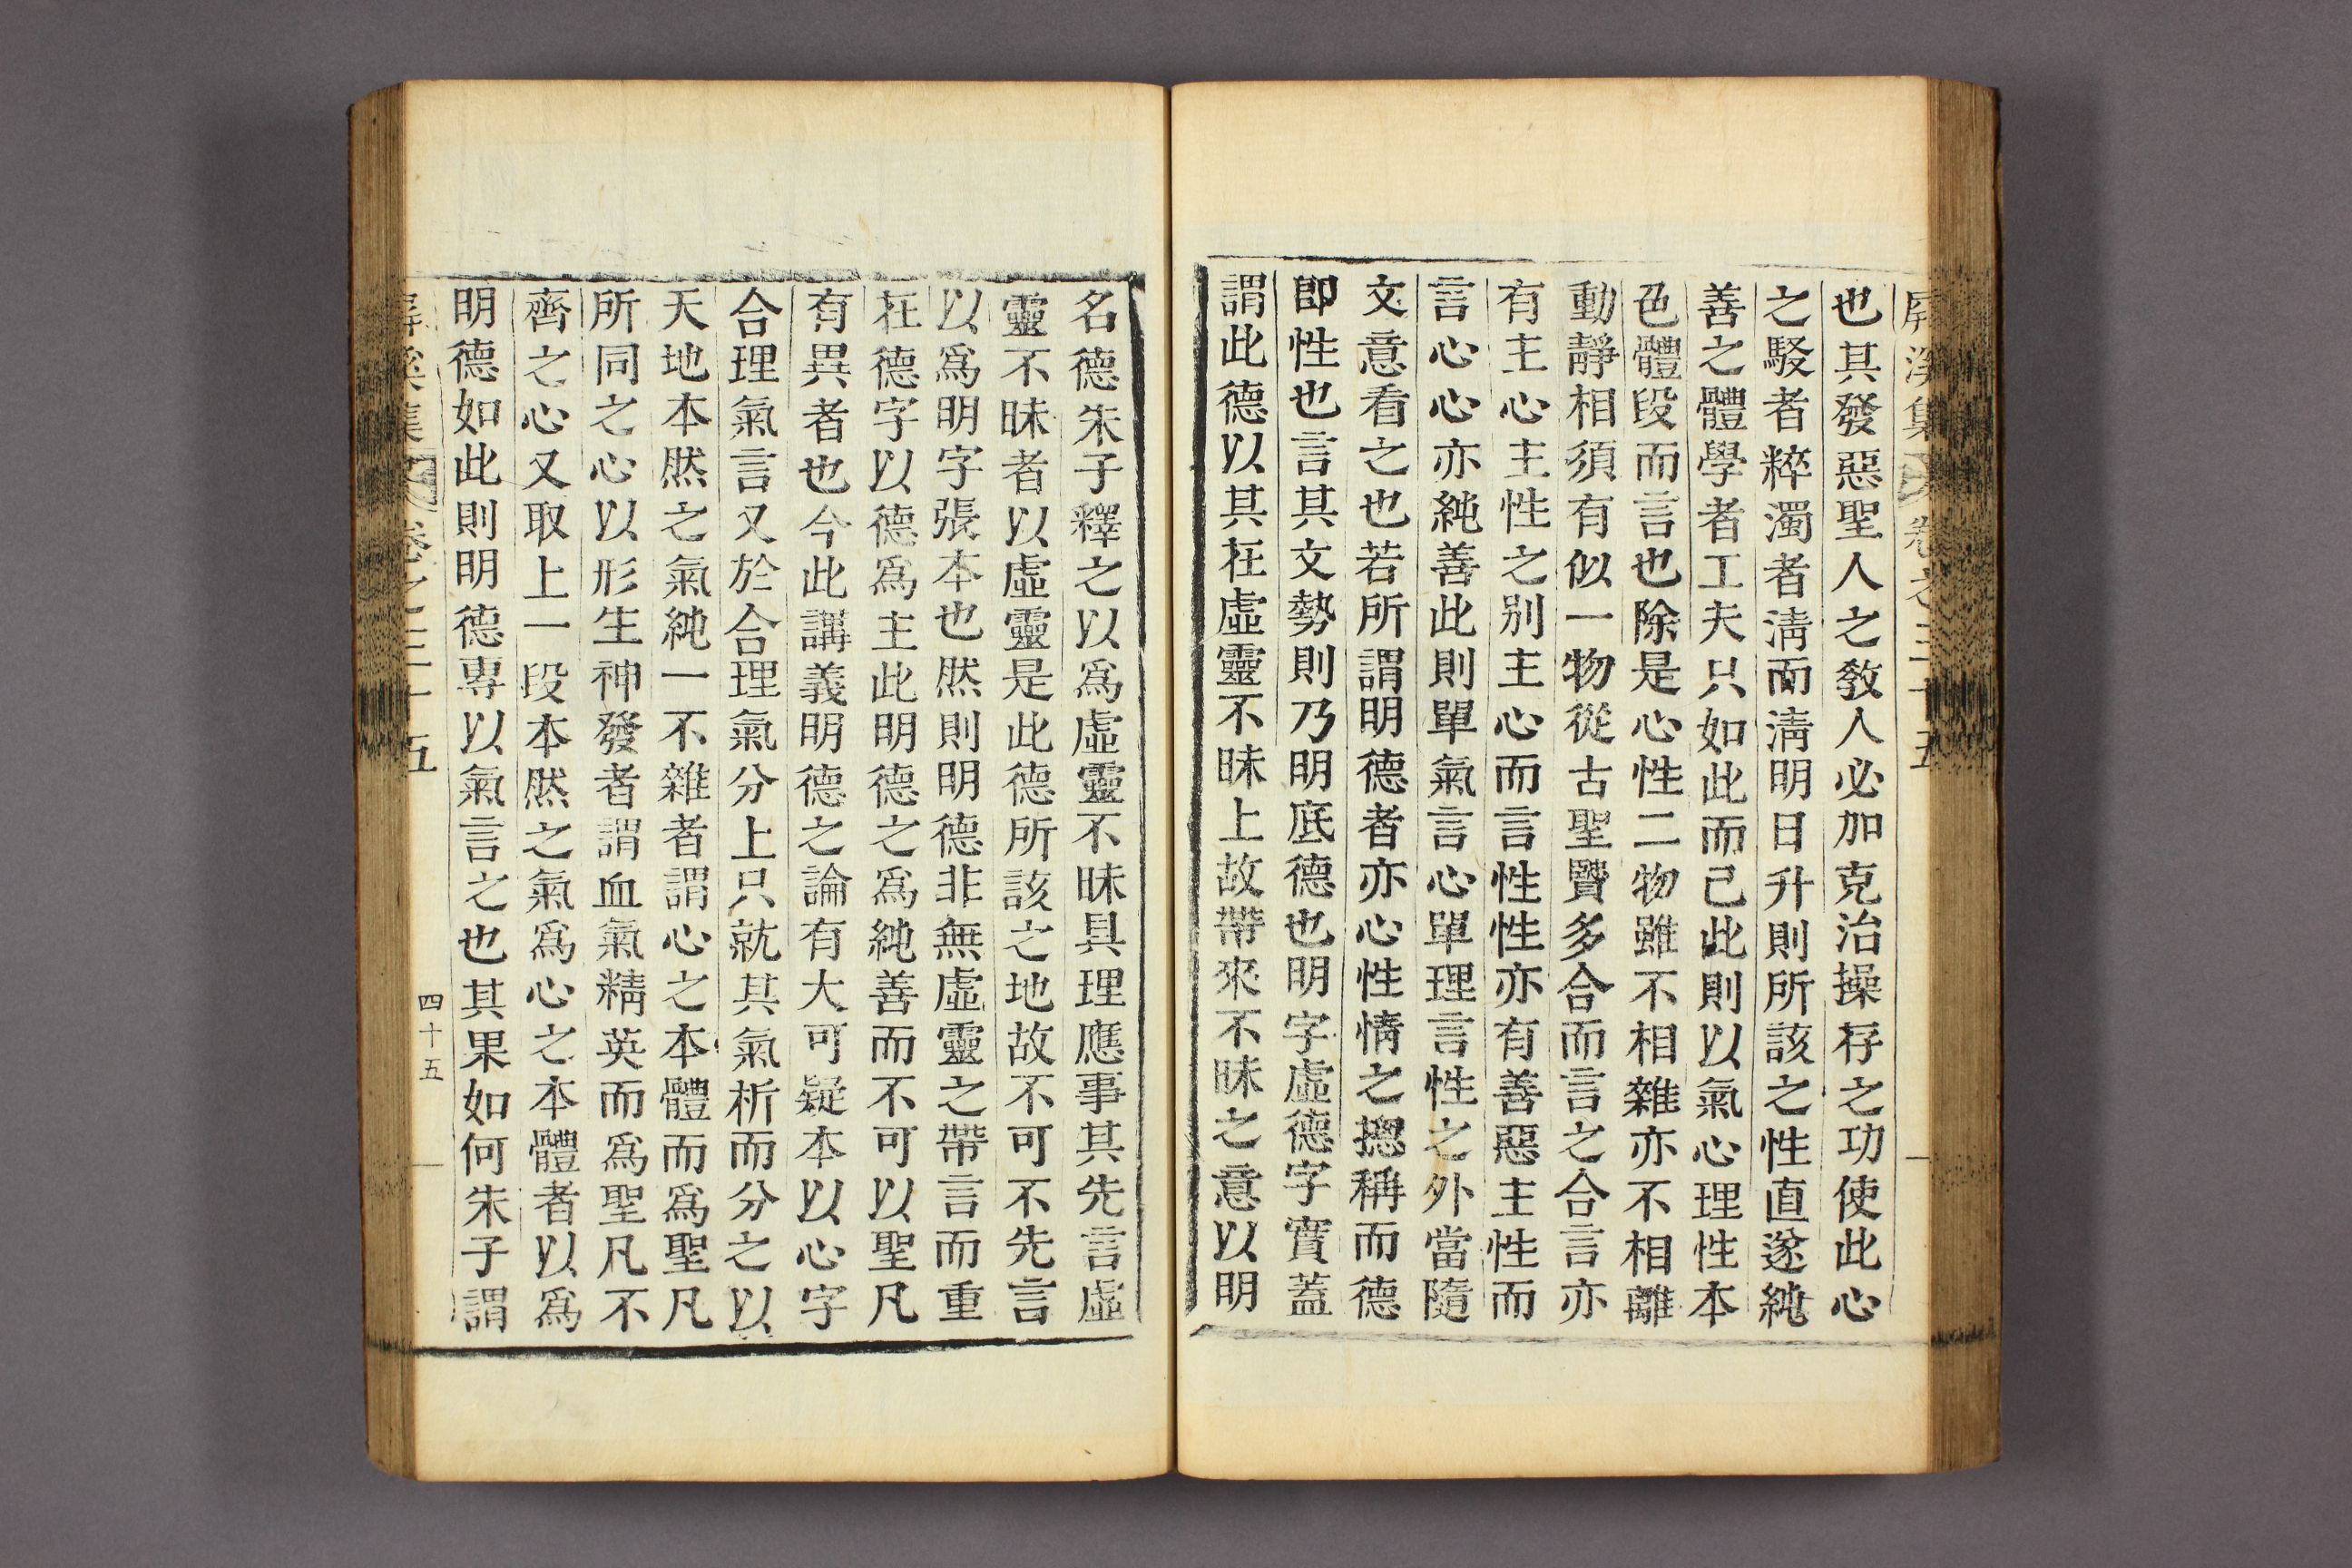 屛溪集 卷之三十五
也其發惡聖人之敎人必加克治操存之功使此心
之駁者粹濁者淸而淸明日升則所該之性直遂純
善之體學者工夫只如此而已此則以氣心理性本
色體段而言也除是心性二物雖不相雜亦不相離
動靜相須有似一物從古聖賢多合而言之合言亦
有主心主性之别主心而言性性亦有善惡主性而
言心心亦純善此則單氣言心單理言性之外當隨
文意看之也若所謂明德者亦心性情之摠稱而德
卽性也言其文勢則乃明底德也明字虛德字實蓋
謂此德以其在虛靈不昧上故帶來不昧之意以明
名德朱子釋之以爲虛靈不昧具理應事其先言虛
靈不昧者以虛靈是此德所該之地故不可不先言
以爲明字張本也然則明德非無虛靈之帶言而重
在德字以德爲主此明德之爲純善而不可以聖凡
有異者也今此講義明德之論有大可疑本以心字
合理氣言又於合理氣分上只就其氣析而分之以
天地本然之氣純一不雜者謂心之本體而爲聖凡
所同之心以形生神發者謂血氣精英而爲聖凡不
齊之心又取上一段本然之氣爲心之本體者以爲
明德如此則明德專以氣言之也其果如何朱子謂
屛溪集 卷之三十五
四十五